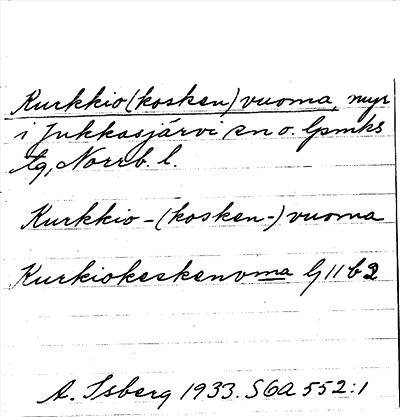 Kurkkio(kosken)vuoma, myr
i Jukkasjärvi sn o. lpmks
tg, Norrb. l.
Kurkkio-(kosken-)vuoma
Kurkiokoskenvma G 11 b 2
A. Isberg 1933. SGA 552:1